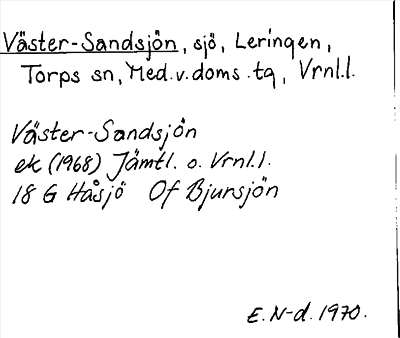 Väster-Sandsjön, sjö, Leringen,
Torps sn, Med.v.doms.tg, Vrnl.l.
Väster-Sandsjön
ek (1968) Jämtl. o. Vrnl.l.
18 G Håsjö Of Bjursjön
E.N-d. 1970.